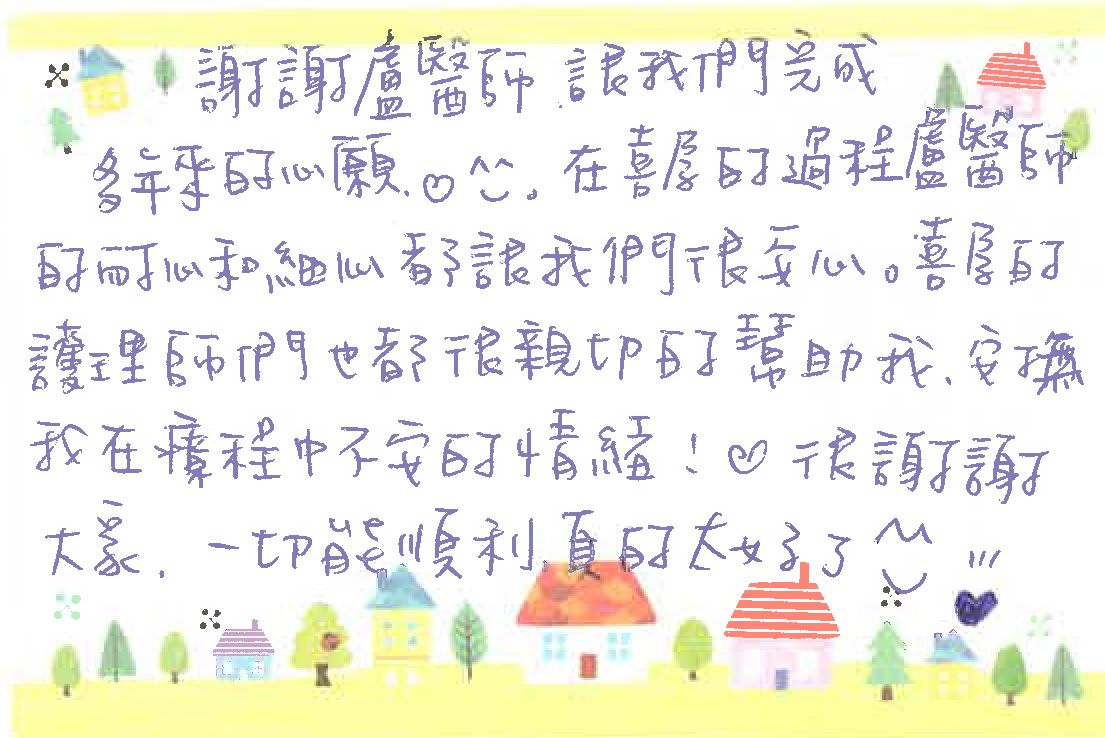 謝謝盧醫師 讓我們完成
多年來的心願.♡^^。在喜孕的過程盧醫師
的耐心和細心都讓我們很安心。喜孕的
護理師們也都很親切的幫助我、安撫
我在療程中不安的情緒！♡ 很謝謝
大家. 一切能順利真的太好了